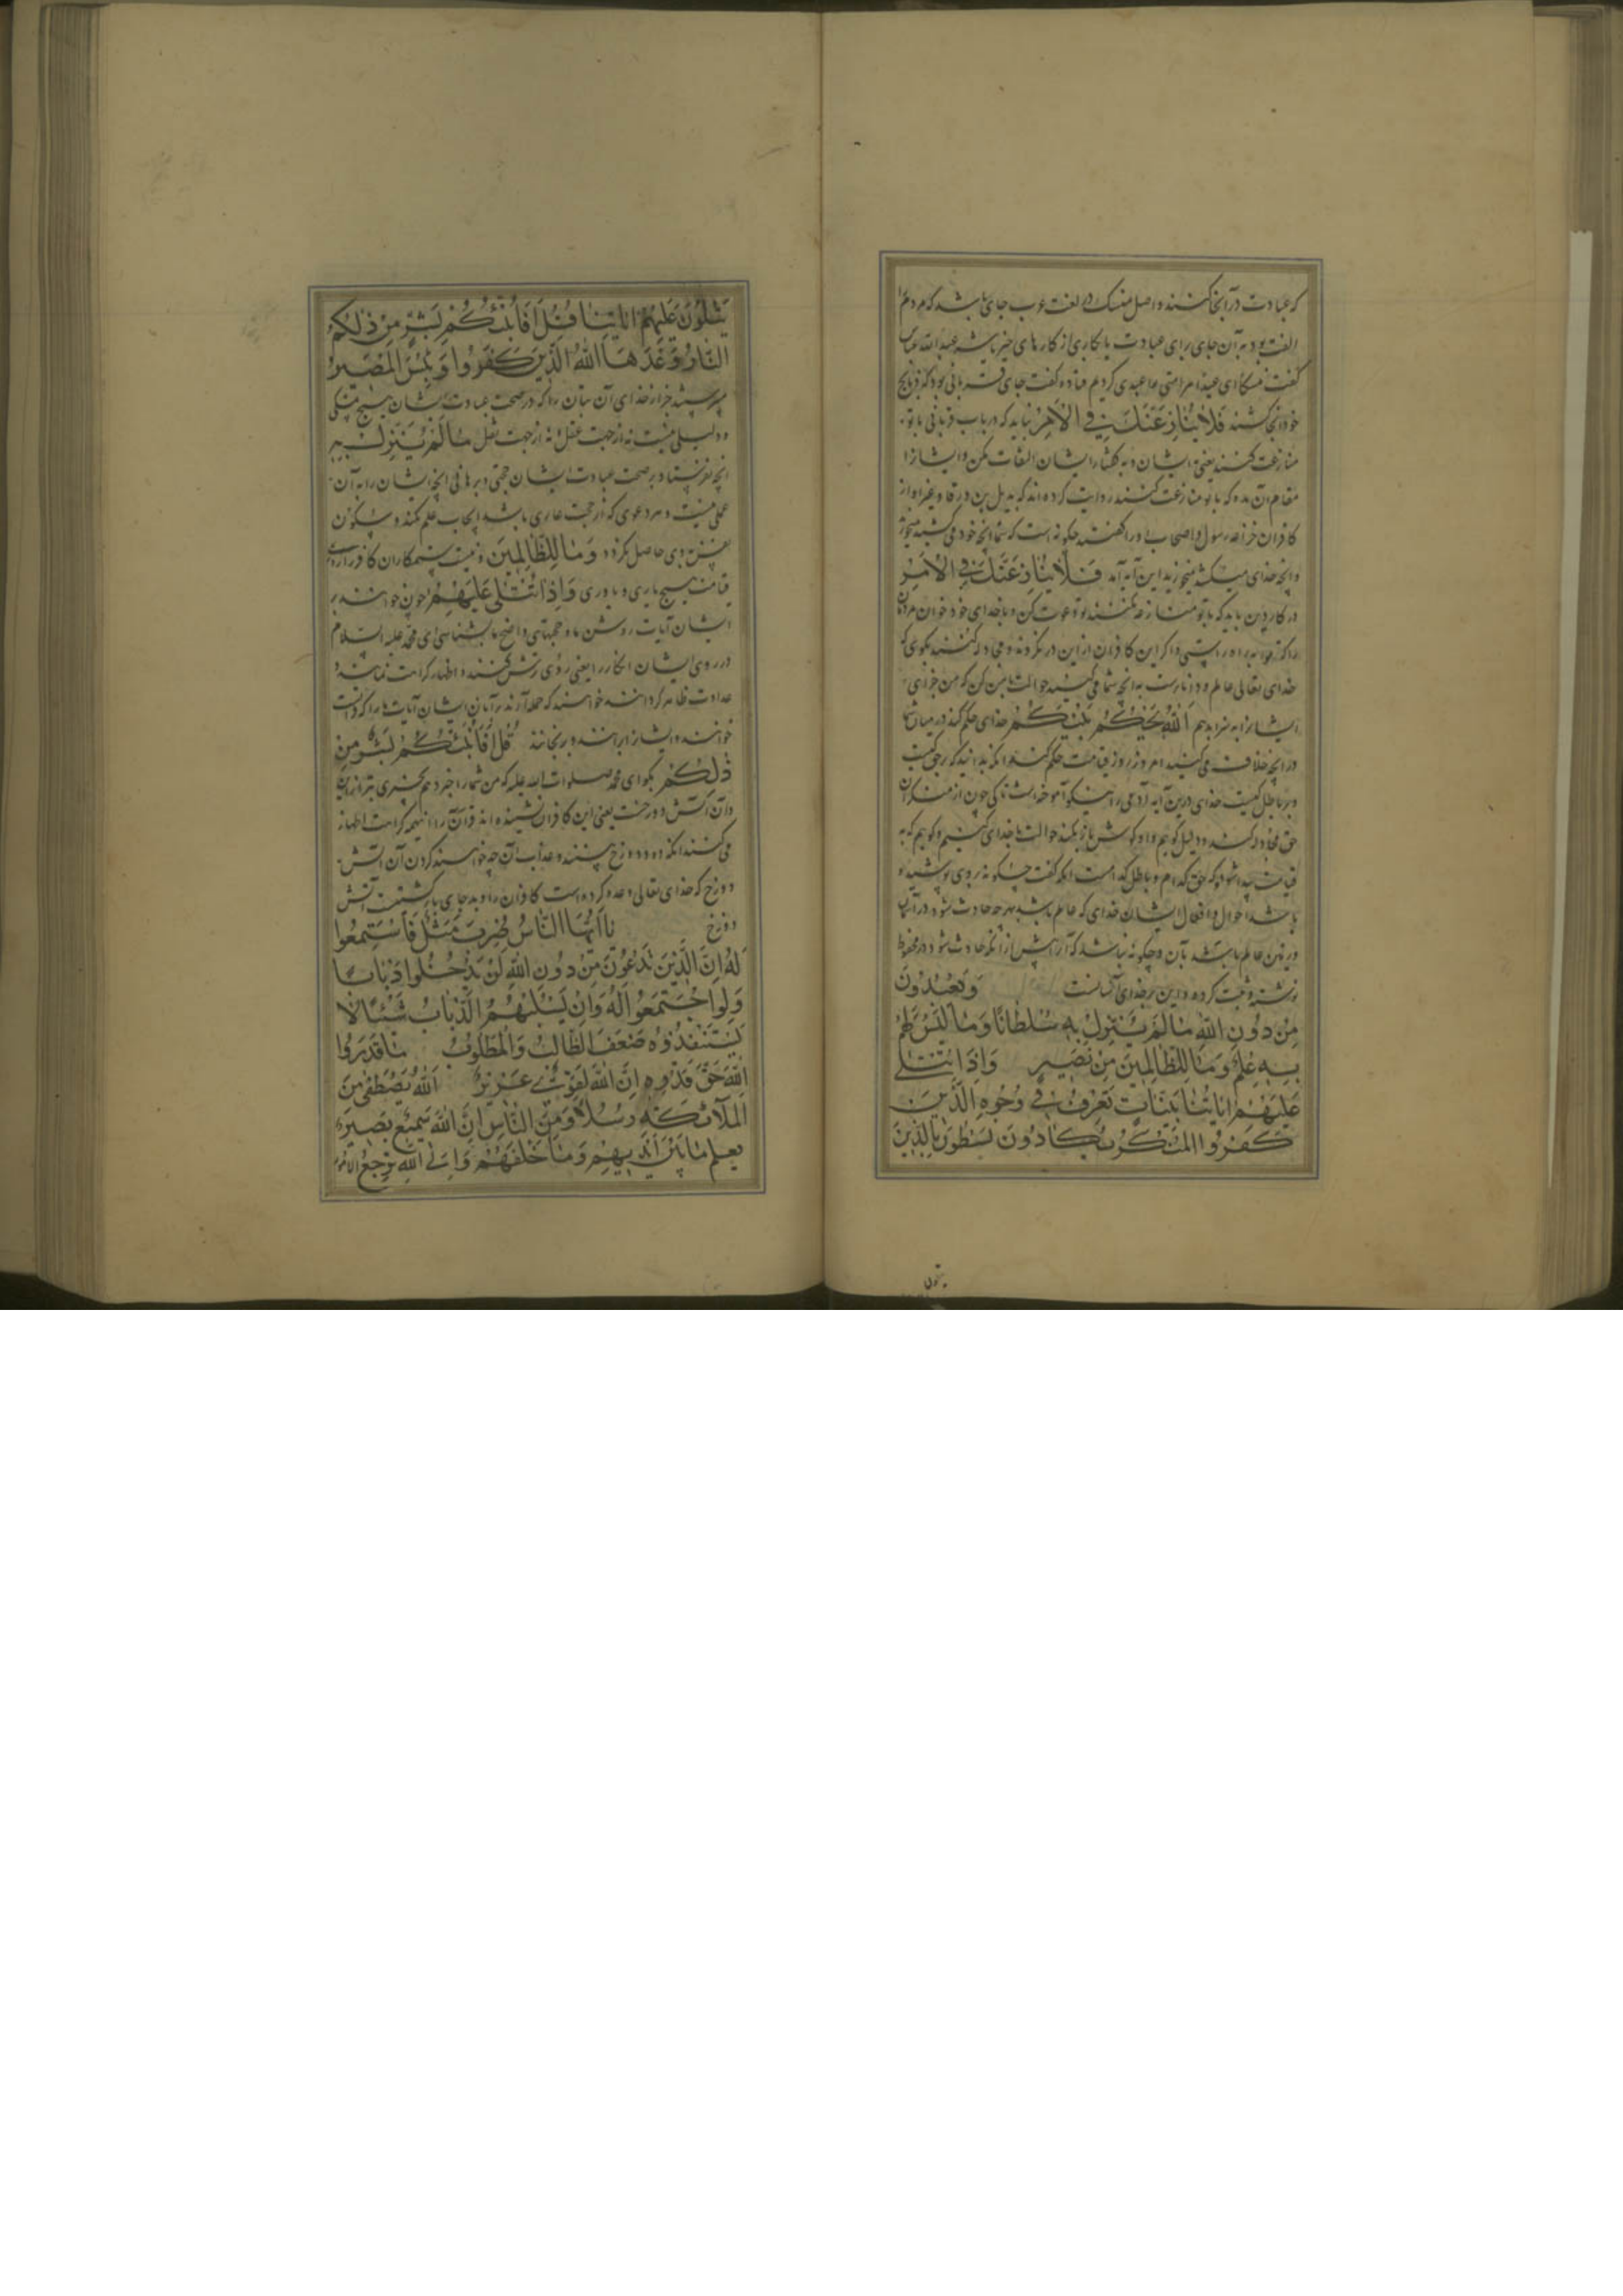 که عبادت در آنجا کنند و اصل منسک در لغت عرب جای باشد که مردم را
الفت بود به آن جای برای عبادت یا کاری از کارهای خیر یا شر عبدالله عباس
گفت منسکا ای عیدا مراسی عیدی کردیم قتاده گفت جای قربانی بود که ذبایح
خود آنجا کشند فَلَا يُنَازِعُنَّكَ فِي الْأَمْرِ نباید که در باب قربانی با تو
منازعت کنند یعنی ایشان و به گفتار ایشان التفات مکن و ایشانرا
مقام آن مده که با تو منازعت کنند روایت کرده اند که بدیل بن ورقا و غیر او از
کافران خزاعه رسول و اصحاب او را گفتند چگونه است که شما انچه خود می کشید میخورید
و انچه خدای میکشد نمیخورید این آیه آمد فَلَا يُنَازِعُنَّكَ فِي الْأَمْرِ
در کار دین باید که با تو منازعه نکنند تو دعوت کن و با خدای خود خوان مردمان
را که تو به راه راستی و اگر این کافران از این در نگروند و مجادله کنند بگوی که
خدای تعالی عالم و داناست به انچه شما می کنید حوالت با من کن که من جزای
ایشانرا به سزا بدهم اَللهُ يَحْكُمُ بَيْنَكُمْ خدای حکم کند در میان شما
در انچه خلاف می کنید امروز روز قیامت حکم کند تا بدانید که بر حق کیست
و بر باطل کیست خدای درین آیه آدمی را نیکو آموخت تا کی چون از منکران
حق مجادله کنند و دلیل گوییم و او گوش باز نکند حوالت با خدای کنیم و گوییم که به
قیامت پیدا شود که حق کدام و باطل کدام است انکه گفت چگونه بر وی پوشیده
باشد احوال و افعال ایشان خدای که عالم باشد بهر چه حادث شود در آسمان
و زمین عالم باشد بآن و چگونه نباشد که آن را پیش از آنکه حادث شود در لوح محفوظ
نوشته و ثبت کرده و این بر خدای آسانست وَيَعْبُدُونَ
مِنْ دُونِ اللهِ مَا لَمْ يُنَزِّلْ بِهِ سُلْطَانًا وَمَا لَيْسَ لَهُمْ
بِهِ عِلْمٌ وَمَا لِلظَّالِمِينَ مِنْ نَصِيرٍ وَإِذَا تُتْلَى
عَلَيْهِمْ اٰيَاتُنَا بَيِّنَاتٍ تَعْرِفُ فِي وُجُوهِ الَّذِينَ
كَفَرُوا الْمُنْكَرَ يَكَادُونَ يَسْطُونَ بِالَّذِينَ
يتلون
يَتْلُونَ عَلَيْهِمْ اٰيَاتِنَا قُلْ أَفَأُنَبِّئُكُمْ بِشَرٍّ مِنْ ذٰلِكُمُ
النَّارُ وَعَدَهَا اللهُ الَّذِينَ كَفَرُوا وَبِئْسَ الْمَصِيرُ
میپرستید جز از خدای آن بتان را که در صحت عبادت ایشان هیچ متمسکی
و دلیلی نیست نه از جهت عقل و نه از جهت نقل مَا لَمْ يُنَزِّلْ بِهِ
انچه نفرستاد بر صحت عبادت ایشان حجتی و برهانی انچه ایشان را به آن
علمی نیست و هر دعوی که از حجت عاری باشد ایجاب علم نکند و سکون
نفس بوی حاصل نگردد وَمَا لِلظَّالِمِينَ و نیست ستمکاران کافر را روز
قیامت هیچ یاری و یاوری وَإِذَا تُتْلَى عَلَيْهِمْ و چون خوانند بر
ایشان آیات روشن ما و حجتهای واضح ما بشناسی ای محمد علیه السلام
در روی ایشان انکار را یعنی روی ترش کنند و اظهار کراهت نمایند و
عداوت ظاهر گردانند خواستند که حمله آرند بر آنان ایشان آیات ما را که دانست
خوانند و ایشانرا برانند و برنجانند قُلْ أَفَأُنَبِّئُكُمْ بِشَرٍّ مِنْ
ذٰلِكُمْ بگو ای محمد صلوات الله علیه که من شما را خبر دهم بچیزی بتر از این
و آن آتش دوزخست یعنی این کافران نشنیده اند قرآن را اینهمه کراهت اظهار
می کنند انکه که دوزخ بینند و عذاب آن چه خواهند کردن آن آتش
دوزخ که خدای تعالی وعده کرده است کافران را و بد جای بازگشتست آتش
دوزخ يَا أَيُّهَا النَّاسُ ضُرِبَ مَثَلٌ فَاسْتَمِعُوا
لَهُ إِنَّ الَّذِينَ تَدْعُونَ مِنْ دُونِ اللهِ لَنْ يَخْلُقُوا ذُبَابًا
وَلَوِ اجْتَمَعُوا لَهُ وَإِنْ يَسْلُبْهُمُ الذُّبَابُ شَيْئًا لَا
يَسْتَنْقِذُوهُ ضَعُفَ الطَّالِبُ وَالْمَطْلُوبُ مَا قَدَرُوا
اللهَ حَقَّ قَدْرِهِ إِنَّ اللهَ لَقَوِيٌّ عَزِيزٌ اَللهُ يَصْطَفِي مِنَ
الْمَلَائِكَةِ رُسُلًا وَمِنَ النَّاسِ إِنَّ اللهَ سَمِيعٌ بَصِيرٌ
يَعْلَمُ مَا بَيْنَ أَيْدِيهِمْ وَمَا خَلْفَهُمْ وَإِلَى اللهِ تُرْجَعُ الْأُمُورُ